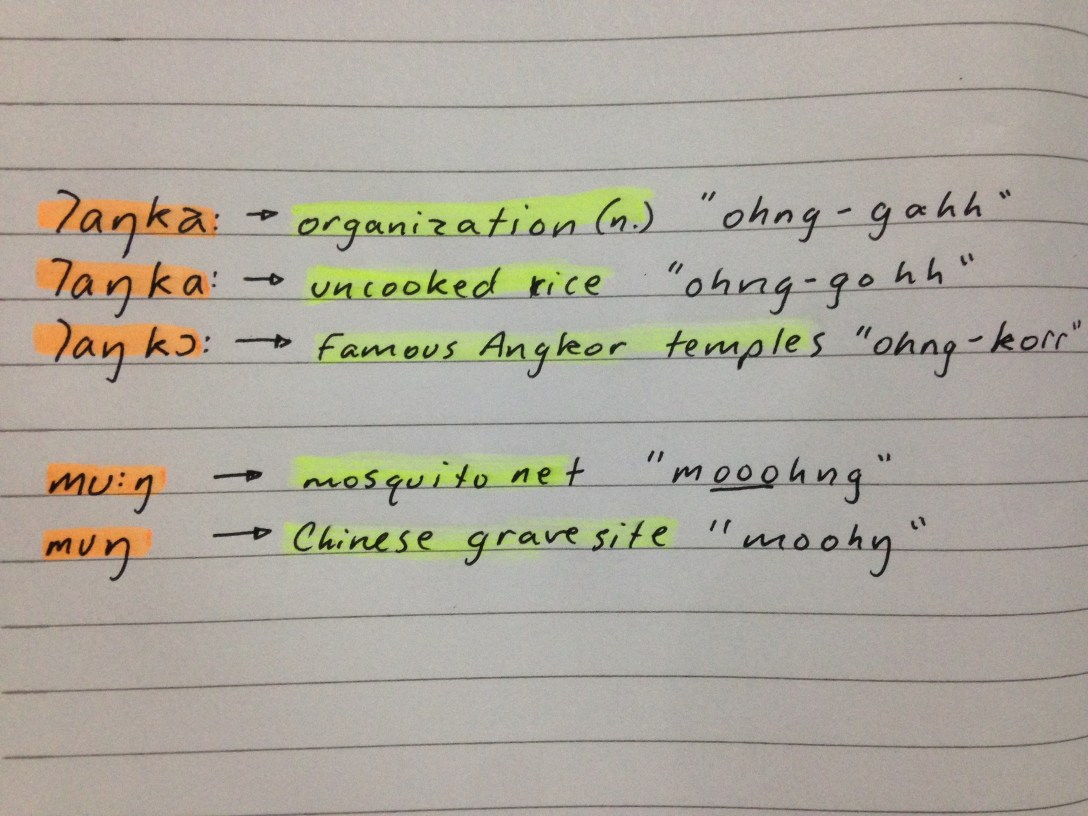 ʔaŋkā: → organization (n.) "ohng-gahh"
ʔaŋka: → uncooked rice "ohng-gohh"
ʔaŋkɔ: → Famous Angkor temples "ohng-korr"
mu:ŋ → mosquito net "mooohng"
muŋ → Chinese gravesite "moohŋ"